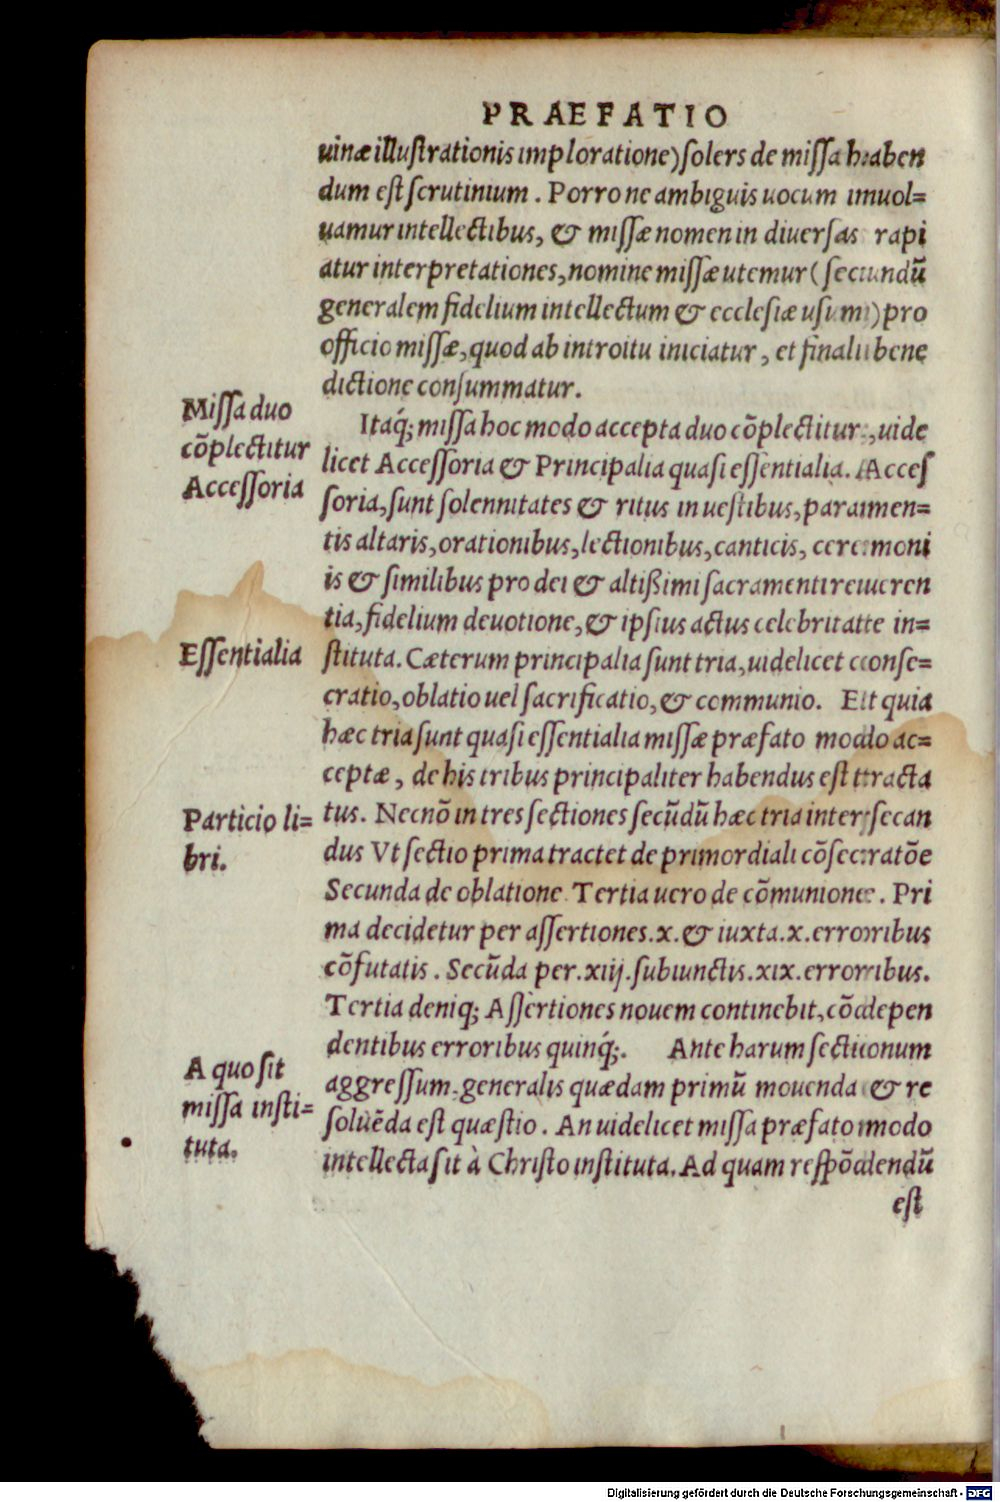 PRAEFATIO
uinæ illustrationis imploratione) solers de missa haben
dum est scrutinium. Porro ne ambiguis uocum inuol=
uamur intellectibus, & missæ nomen in diuersas rapi
atur interpretationes, nomine missæ utemur (secundū
generalem fidelium intellectum & ecclesiæ usum) pro
officio missæ, quod ab introitu iniciatur, et finali bene
dictione consummatur.
Missa duo
cōplectitur
Accessoria
Itaq́; missa hoc modo accepta duo cōplectitur, uide
licet Accessoria & Principalia quasi essentialia. Acces
soria, sunt solennitates & ritus in uestibus, paramen=
tis altaris, orationibus, lectionibus, canticis, ceremoni
is & similibus pro dei & altißimi sacramenti reueren
tia, fidelium deuotione, & ipsius actus celebritate in=
Essentialia
stituta. Cæterum principalia sunt tria, uidelicet conse=
cratio, oblatio uel sacrificatio, & communio. Et quia
hæc tria sunt quasi essentialia missæ præfato modo ac=
ceptæ, de his tribus principaliter habendus est tracta
Particio li=
bri.
tus. Necnō in tres sectiones secūdū hæc tria intersecan
dus Vt sectio prima tractet de primordiali cōsecratōe
Secunda de oblatione Tertia uero de cōmunione. Pri
ma decidetur per assertiones.x. & iuxta.x.erroribus
cōfutatis. Secūda per.xiij.subiunctis.xix.erroribus.
Tertia deniq; Assertiones nouem continebit, cōdepen
dentibus erroribus quinq́;. Ante harum sectionum
A quo sit
missa insti=
tuta.
aggressum generalis quædam primū mouenda & re
soluēda est quæstio. An uidelicet missa præfato modo
intellecta sit à Christo instituta. Ad quam respōdendū
est
Digitalisierung gefördert durch die Deutsche Forschungsgemeinschaft - DFG